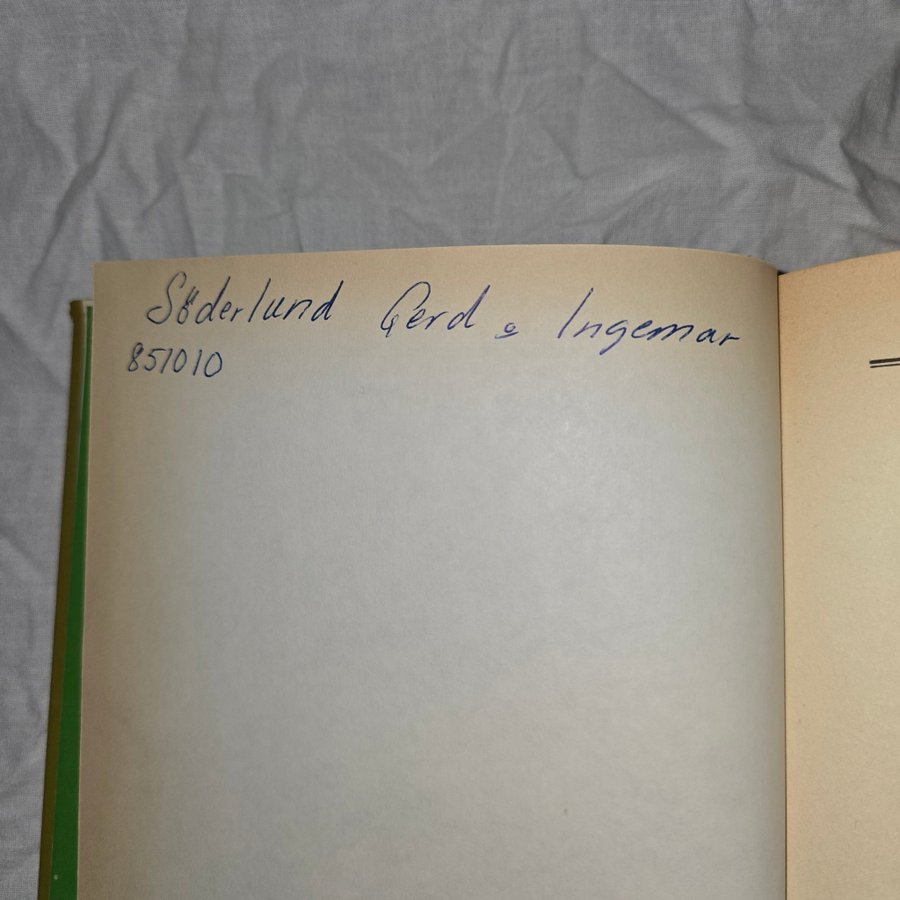 Söderlund Gerd o Ingemar
851010